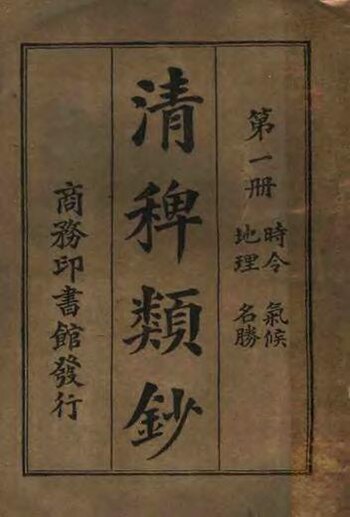 第一册
時令 氣候
地理 名勝
清稗類鈔
商務印書館發行